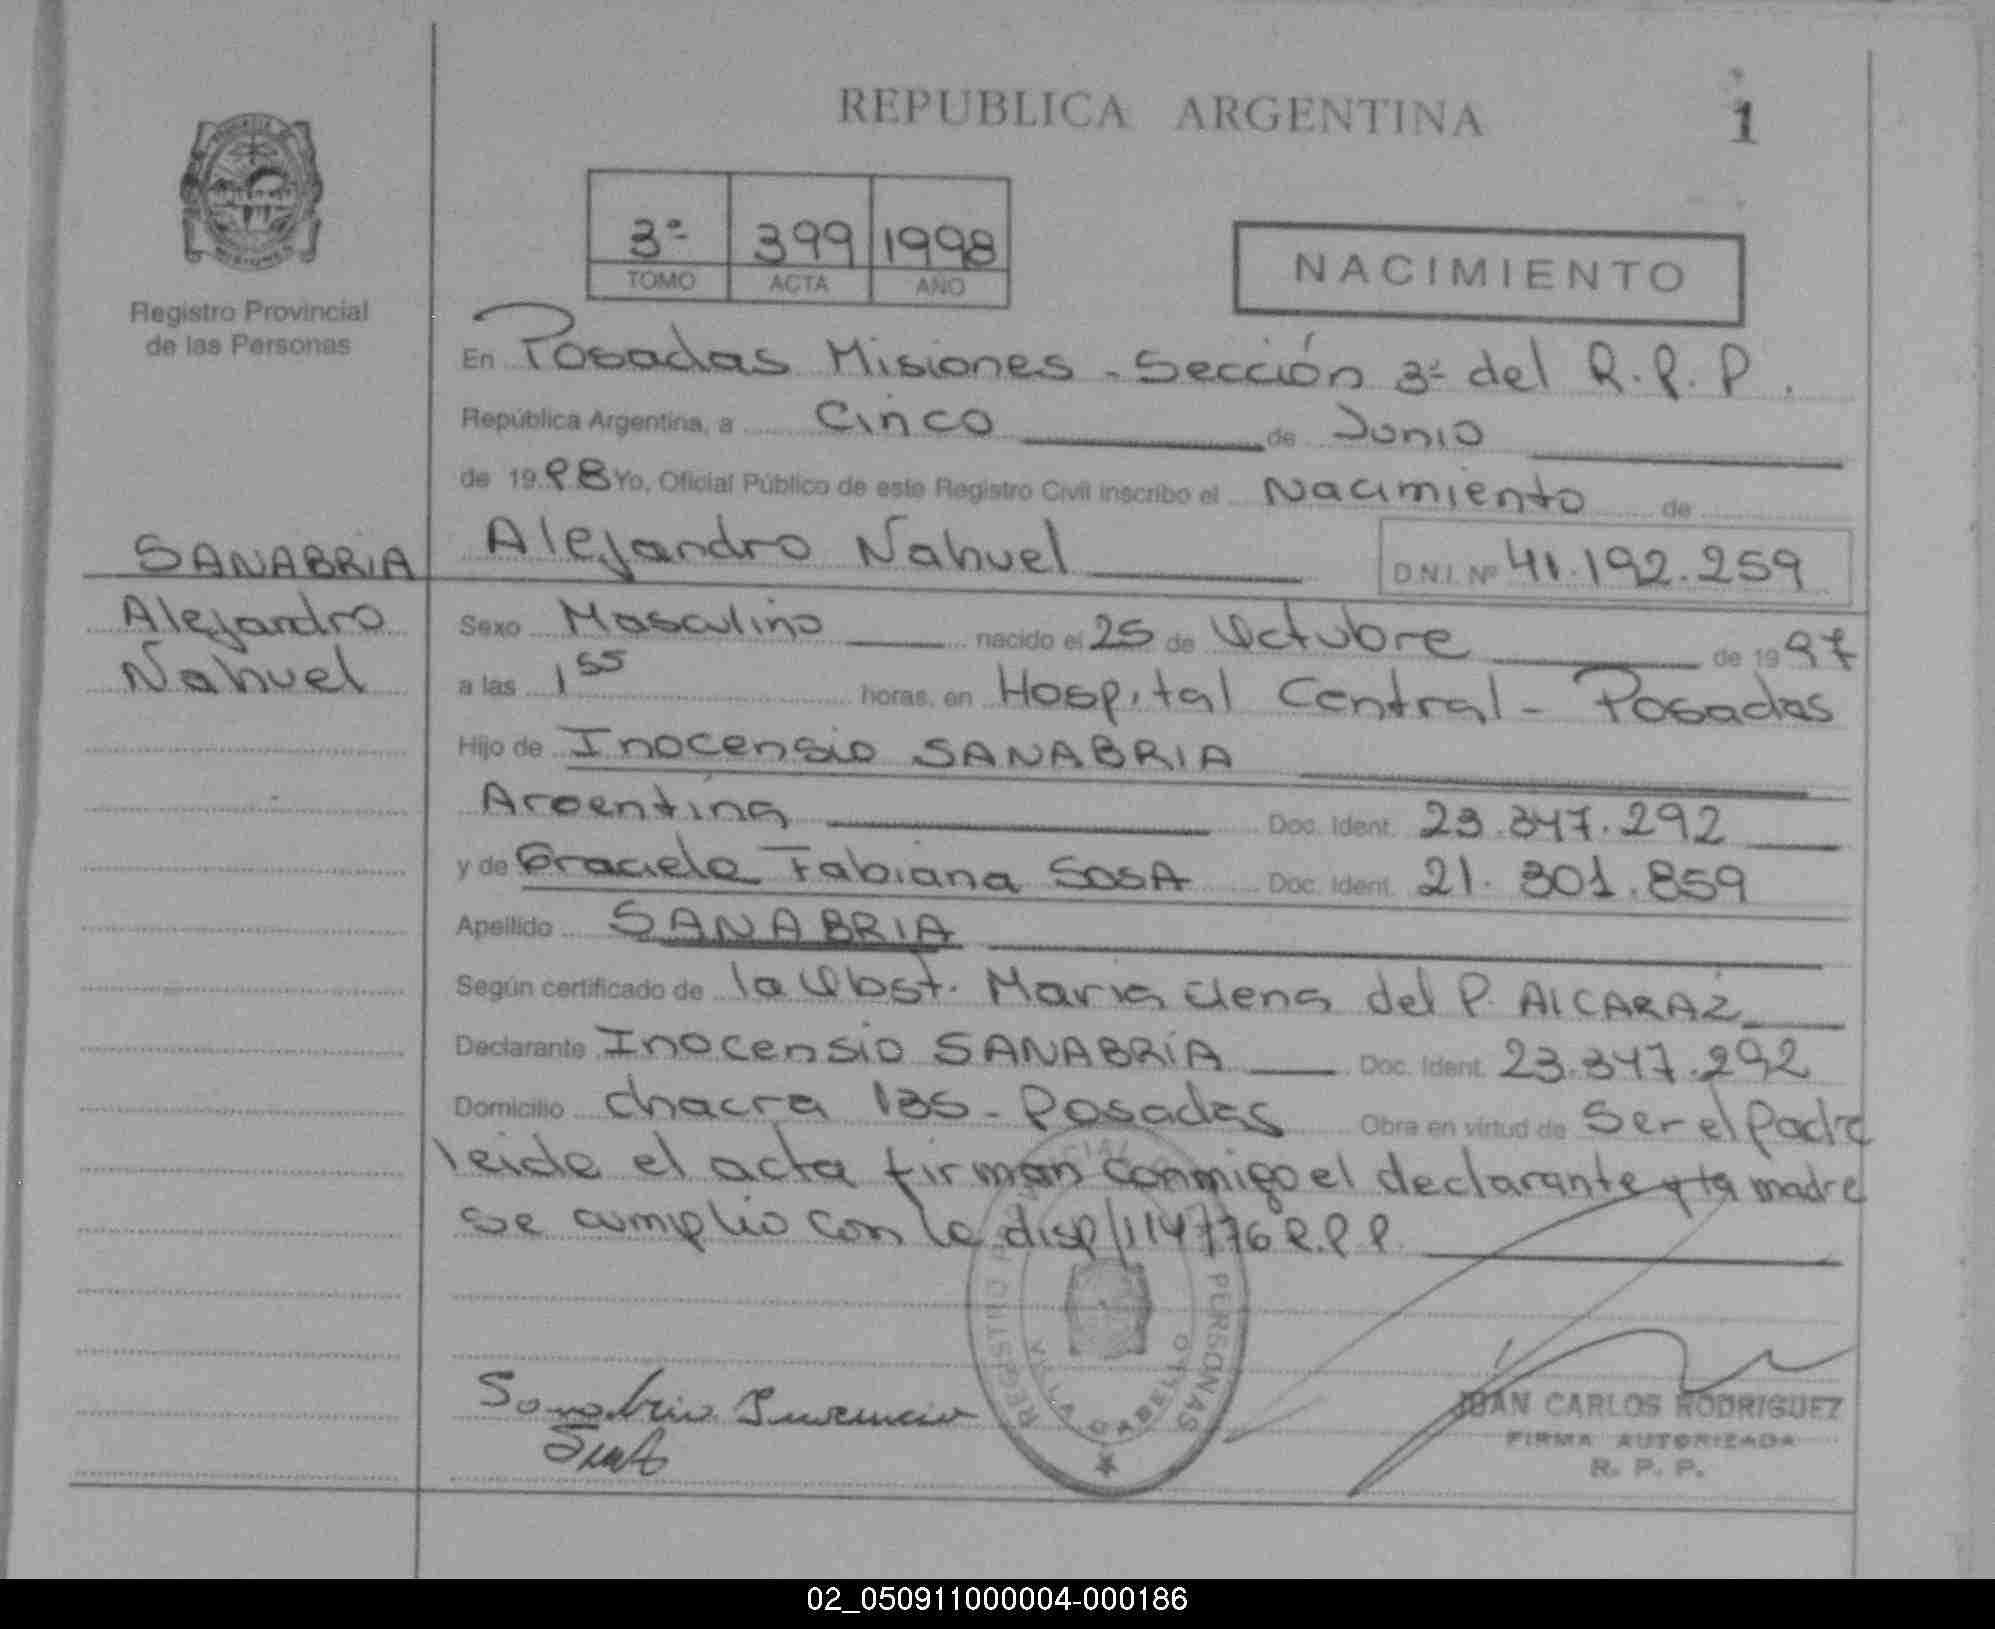 REPUBLICA ARGENTINA
1
3ª 399 1998
TOMO ACTA AÑO
NACIMIENTO
Registro Provincial
de las Personas
En Posadas Misiones - Sección 3ª del R.P.P.
República Argentina, a Cinco de Junio
de 1998 Yo, Oficial Público de este Registro Civil inscribo el Nacimiento de
SANABRIA
Alejandro
Nahuel
Alejandro Nahuel D.N.I. Nº 41.192.259
Sexo Masculino nacido el 25 de Octubre de 1997
a las 1 55 horas, en Hospital Central - Posadas
Hijo de Inocensio SANABRIA
Argentina Doc. Ident. 23.347.292
y de Graciela Fabiana SOSA Doc. Ident. 21.301.859
Apellido SANABRIA
Según certificado de la Obst. Maria Elena del P. ALCARAZ
Declarante Inocensio SANABRIA Doc. Ident. 23.347.292
Domicilio Chacra 135 - Posadas Obra en virtud de Ser el Padre
leida el acta firman conmigo el declarante y la madre
se cumplio con la disp/114/76 R.P.P.
REGISTRO PROVINCIAL PERSONAS
VILLA CABELLO
Sanabria Inocencio
JUAN CARLOS RODRIGUEZ
FIRMA AUTORIZADA
R. P. P.
02_050911000004-000186